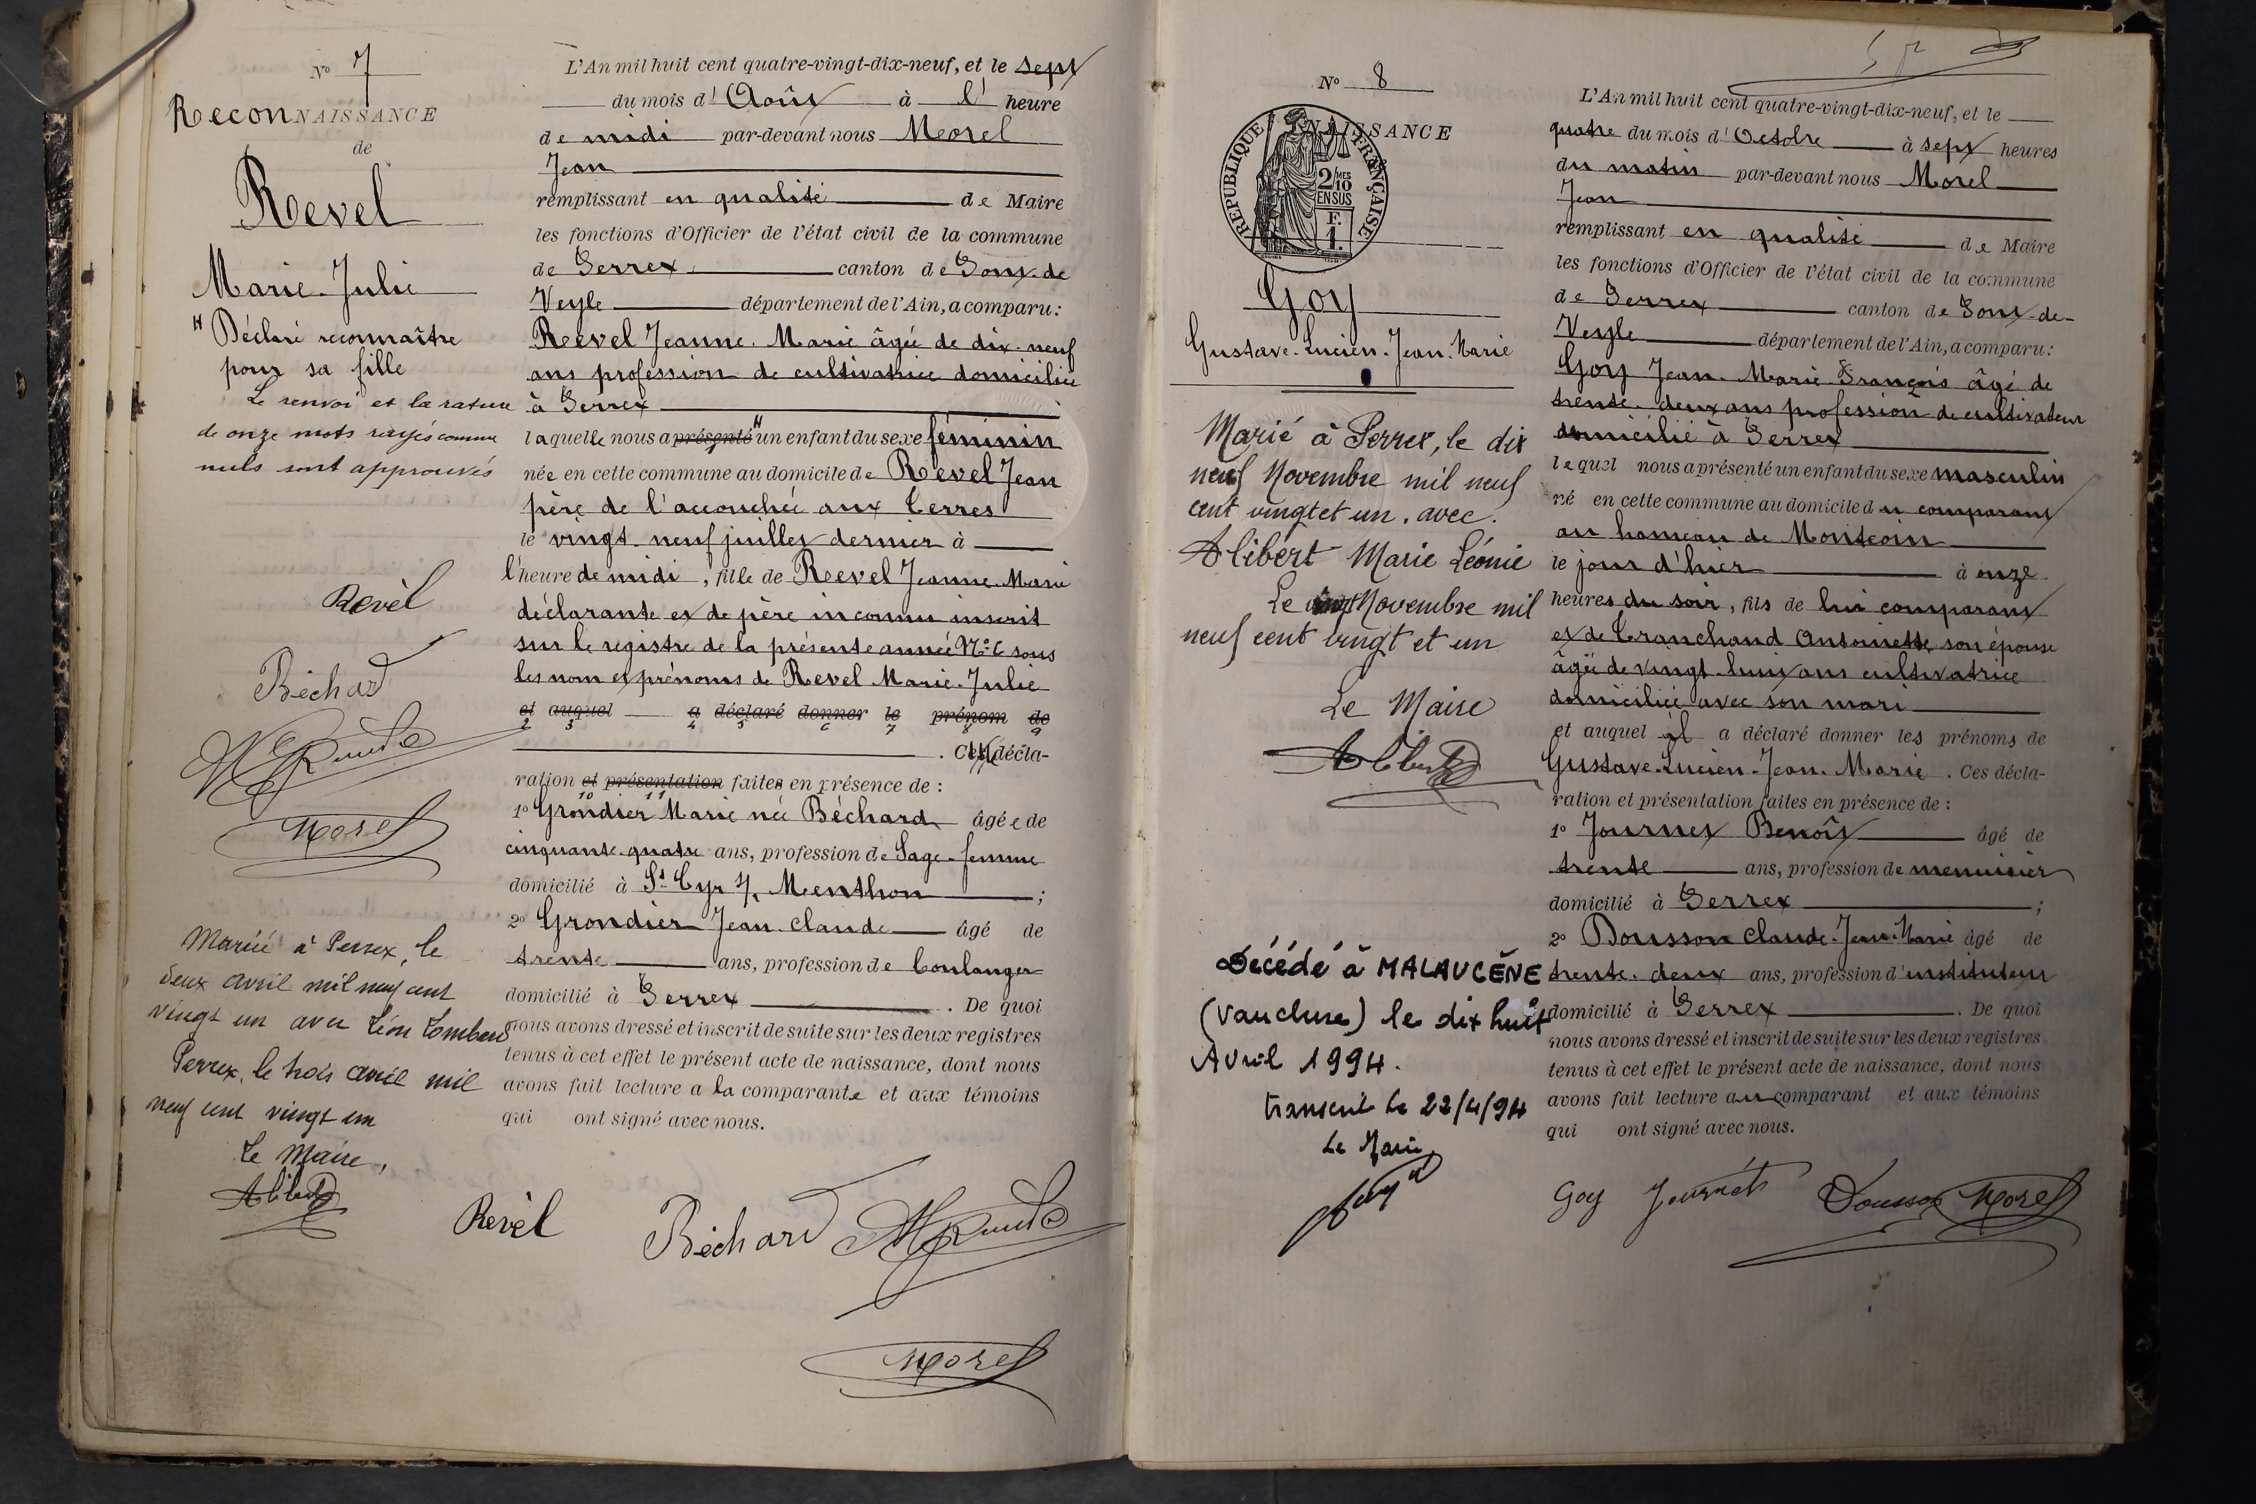 N° 7
ReconNAISSANCE
de
Revel
Marie-Julie
H Déclaré reconnaître
pour sa fille
Le renvoi et la rature
de onze mots rayés comme
nuls sont approuvés
Revèl
Béchard
Morel
Mariée à Perrex, le
deux avril mil neuf cent
vingt un avec Léon
Perrex, le trois avril mil
neuf cent vingt un
Le Maire,
Alibert
L'An mil huit cent quatre-vingt-dix-neuf, et le sept
du mois d'Août à l' heure
de midi par-devant nous Morel
Jean
remplissant en qualité de Maire
les fonctions d'Officier de l'état civil de la commune
de Perrex canton de Pont-de
Veyle département de l'Ain, a comparu:
Revel Jeanne-Marie âgée de dix-neuf
ans profession de cultivatrice domiciliée
à Perrex
laquelle nous a présenté H un enfant du sexe féminin
née en cette commune au domicile de Revel Jean
père de l'accouchée aux Terres
le vingt-neuf juillet dernier à
l'heure de midi, fille de Revel Jeanne-Marie
déclarante et de père inconnu inscrit
sur le registre de la présente année N° 6 sous
les nom et prénoms de Revel Marie-Julie
et auquel a déclaré donner le prénom de
2 3 4 5 6 7 8 9
. Cette décla-
ration et présentation faite en présence de :
10 11
1° Grondier Marie née Béchard âgée de
cinquante-quatre ans, profession de Sage-femme
domicilié à St Cyr s/ Menthon ;
2° Grondier Jean-Claude âgé de
trente ans, profession de boulanger
domicilié à Perrex . De quoi
nous avons dressé et inscrit de suite sur les deux registres
tenus à cet effet le présent acte de naissance, dont nous
avons fait lecture a la comparante et aux témoins
qui ont signé avec nous.
Revèl Béchard
Morel
N° 8
NAISSANCE
REPUBLIQUE FRANÇAISE
2/10 MES
EN SUS
F.
1.
Goy
Gustave-Lucien-Jean-Marie
Marié à Perrex, le dix
neuf Novembre mil neuf
cent vingt et un, avec
Alibert Marie Léonie
Le vingt Novembre mil
neuf cent vingt et un
Le Maire
Alibert
Décédé à MALAUCÈNE
(Vaucluse) le dix huit
Avril 1994.
transcrit le 22/4/94
Le Maire
L'An mil huit cent quatre-vingt-dix-neuf, et le
quatre du mois d'Octobre à sept heures
du matin par-devant nous Morel
Jean
remplissant en qualité de Maire
les fonctions d'Officier de l'état civil de la commune
de Perrex canton de Pont-de-
Veyle département de l'Ain, a comparu:
Goy Jean-Marie-François âgé de
trente-deux ans profession de cultivateur
domicilié à Perrex
lequel nous a présenté un enfant du sexe masculin
né en cette commune au domicile du comparant
au hameau de Montcoin
le jour d'hier à onze
heures du soir, fils de lui comparant
et de Tranchand Antoinette, son épouse
âgée de vingt-huit ans cultivatrice
domiciliée avec son mari
et auquel il a déclaré donner les prénoms de
Gustave-Lucien-Jean-Marie . Ces décla-
ration et présentation faites en présence de :
1° Journet Benoît âgé de
trente ans, profession de menuisier
domicilié à Perrex ;
2° Dousson Claude-Jean-Marie âgé de
trente-deux ans, profession d'instituteur
domicilié à Perrex . De quoi
nous avons dressé et inscrit de suite sur les deux registres
tenus à cet effet le présent acte de naissance, dont nous
avons fait lecture au comparant et aux témoins
qui ont signé avec nous.
Goy Journet Dousson Morel